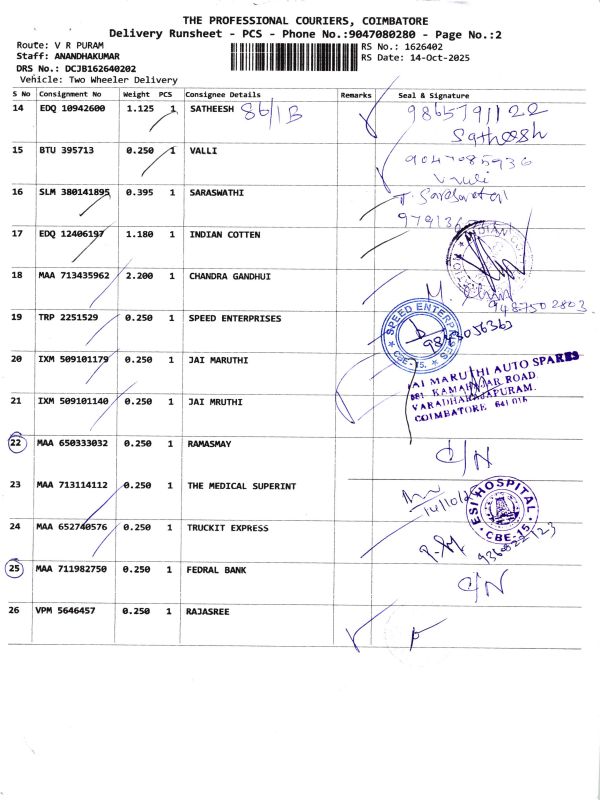 THE PROFESSIONAL COURIERS, COIMBATORE
Delivery Runsheet - PCS - Phone No.:9047080280 - Page No.:2
Route: V R PURAM
Staff: ANANDHAKUMAR
DRS No.: DCJB162640202
Vehicle: Two Wheeler Delivery
RS No.: 1626402
RS Date: 14-Oct-2025
S No Consignment No Weight PCS Consignee Details Remarks Seal & Signature
14 EDQ 10942600 1.125 1 SATHEESH 86/1B 9865791122
Satheesh
15 BTU 395713 0.250 1 VALLI 9047085936
Valli
16 SLM 380141895 0.395 1 SARASWATHI T. Saraswathi
979136
17 EDQ 12406197 1.180 1 INDIAN COTTEN
18 MAA 713435962 2.200 1 CHANDRA GANDHUI M.
9487502803
19 TRP 2251529 0.250 1 SPEED ENTERPRISES SPEED ENTERPRISES
CBE-15.
9843056363
20 IXM 509101179 0.250 1 JAI MARUTHI JAI MARUTHI AUTO SPARES
881 KAMARAJAR ROAD.
VARADHARAJAPURAM.
COIMBATORE 641 015
21 IXM 509101140 0.250 1 JAI MRUTHI
22 MAA 650333032 0.250 1 RAMASMAY C/N
23 MAA 713114112 0.250 1 THE MEDICAL SUPERINT 14/10/25
ESI HOSPITAL
CBE-15
24 MAA 652740576 0.250 1 TRUCKIT EXPRESS
25 MAA 711982750 0.250 1 FEDRAL BANK C/N
26 VPM 5646457 0.250 1 RAJASREE